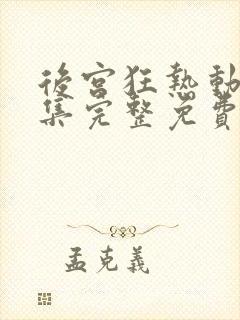 後宮狂熱動
集完整免費
孟克義